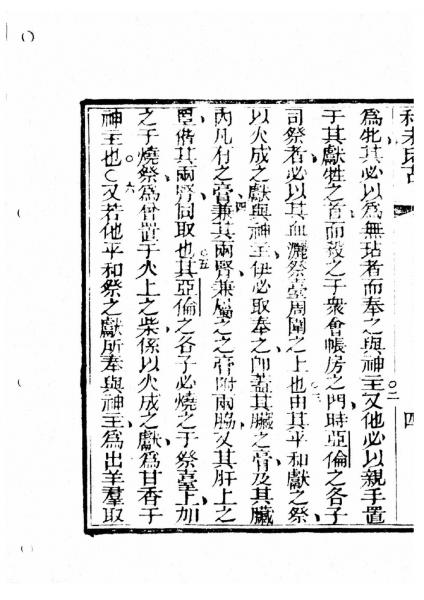 四
爲牝其必以爲無玷者而奉之與神主〇二又他必以親手置
于其獻牲之首而殺之于衆會帳房之門時亞倫之各子
司祭者必以其血灑祭臺周圍之上也〇三由其平和獻之祭
以火成之獻與神主伊必取奉之卽蓋其臟之膏及其臟
內凡有之膏〇四兼其兩腎兼屬之之膏附兩脇又其肝上之
偕其兩腎同取也〇五其亞倫之各子必燒之于祭臺上加
之于燒祭爲曾置于火上之柴係以火成之獻爲甘香于
神主也〇六又若他平和祭之獻所奉與神主爲出羊羣取